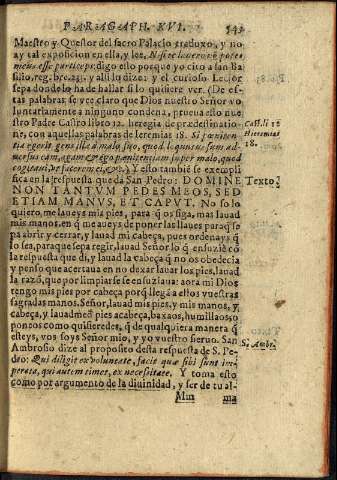 PARAGAPH. XVI. 541
Maestro y Questor del sacro Palacio traduxo, y no
ay tal exposicion en ella, y lee, Nisi te lavero nō potes
meus esse particeps: digo esto porque yo cito a san Ba
silio, reg. bre. 233. y allí lo dize: y el curioso Lector
sepa donde lo ha de hallar si lo quisiere ver. (De es-
tas palabras se vee claro que Dios nuestro Señor vo
luntariamente a ninguno condena, prueua esto nue
stro Padre Castro libro 12. heregia de prædestinatio-
ne, con aquellas palabras de Ieremias 18. Si pœniten
tia egerit gens illa à malo suo, quod locutus sum ad-
uersus eam, agam & ego pœnitentiam super malo, quod
cogitaui, vt facerem ei.) Y esto tambiē se exempli
fica en la respuesta que dà San Pedro: DOMINE
NON TANTVM PEDES MEOS, SED
ETIAM MANVS, ET CAPVT. No solo
quiero, me laueys mis pies, para q̄ os siga, mas lauad
mis manos, en q̄ me aueys de poner las llaues paraq̄ se
pa abrir y cerrar, y lauad mi cabeça, pues ordenays q̄
lo sea, paraque sepa regir, lauad Señor lo q̄ ensuziè cō
la respuesta que di, y lauad la cabeça q̄ no os obedecia
y penso que acertaua en no dexar lauar los pies, lauad
la razō, que por limpiarse se ensuziaua: aora mi Dios
tengo mis pies por cabeça porq̄ llegā a ellos vuestras
sagradas manos. Señor, lauad mis pies, y mis manos, y
cabeça, y lauadme d̄ pies a cabeça, baxaos, humillaos, o
poneos como quisieredes, q̄ de qualquiera manera q̄
esteys, vos soys Señor mio, y yo vuestro sieruo. San
Ambrosio dize al proposito desta respuesta de S. Pe-
dro: Qui diligit ex voluntate, facit quæ sibi sunt im-
perata, qui autem timet, ex necesitate. Y toma esto
como por argumento de la diuinidad, y ser de tu al-
Mm ma
Cast. li. 12
Hieremias
18.
Texto.
S. Ambr.